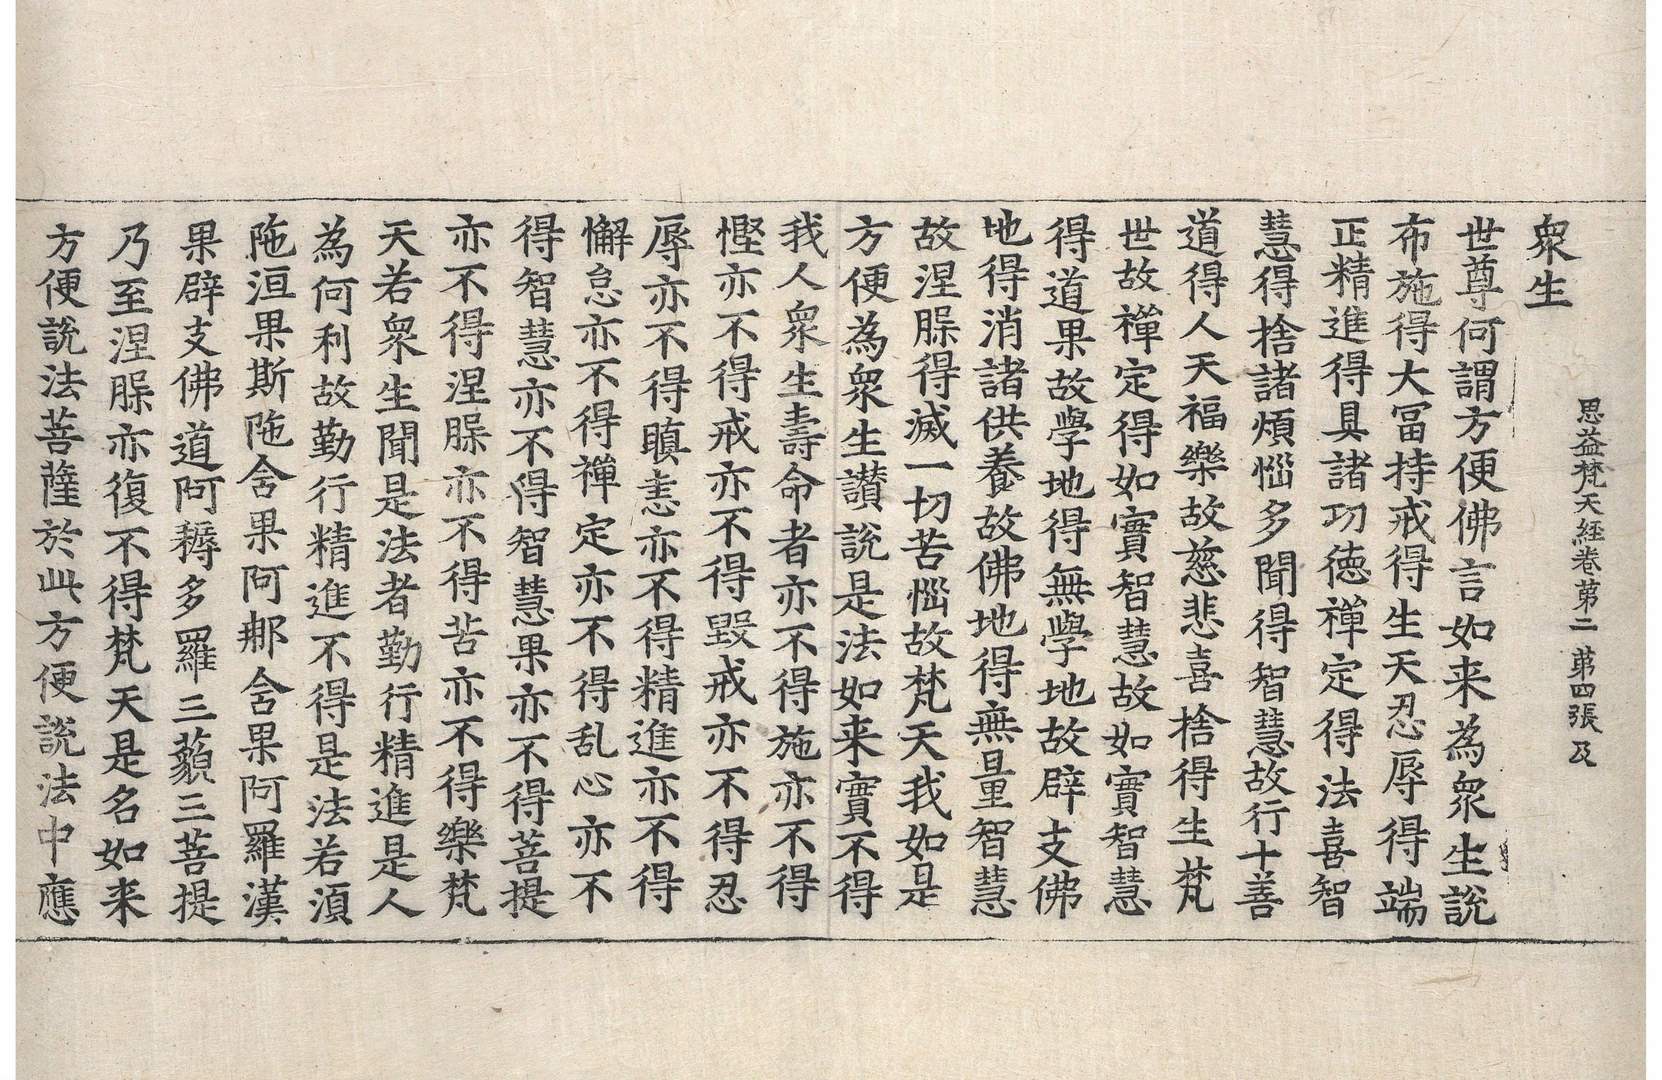 眾生
思益梵天經卷第二 第四張 及
世尊何謂方便佛言如来為眾生說
布施得大冨持戒得生天忍辱得端
正精進得具諸功德禪定得法喜智
慧得捨諸煩惱多聞得智慧故行十善
道得人天福樂故慈悲喜捨得生梵
世故禪定得如實智慧故如實智慧
得道果故學地得無學地故辟支佛
地得消諸供養故佛地得無量智慧
故涅槃得滅一切苦惱故梵天我如是
方便為眾生讃說是法如来實不得
我人眾生壽命者亦不得施亦不得
慳亦不得戒亦不得毀戒亦不得忍
辱亦不得瞋恚亦不得精進亦不得
懈怠亦不得禪定亦不得乱心亦不
得智慧亦不得智慧果亦不得菩提
亦不得涅槃亦不得苦亦不得樂梵
天若眾生聞是法者勤行精進是人
為何利故勤行精進不得是法若湏
陁洹果斯陁含果阿那含果阿羅漢
果辟支佛道阿耨多羅三藐三菩提
乃至涅槃亦復不得梵天是名如来
方便說法菩薩於此方便說法中應